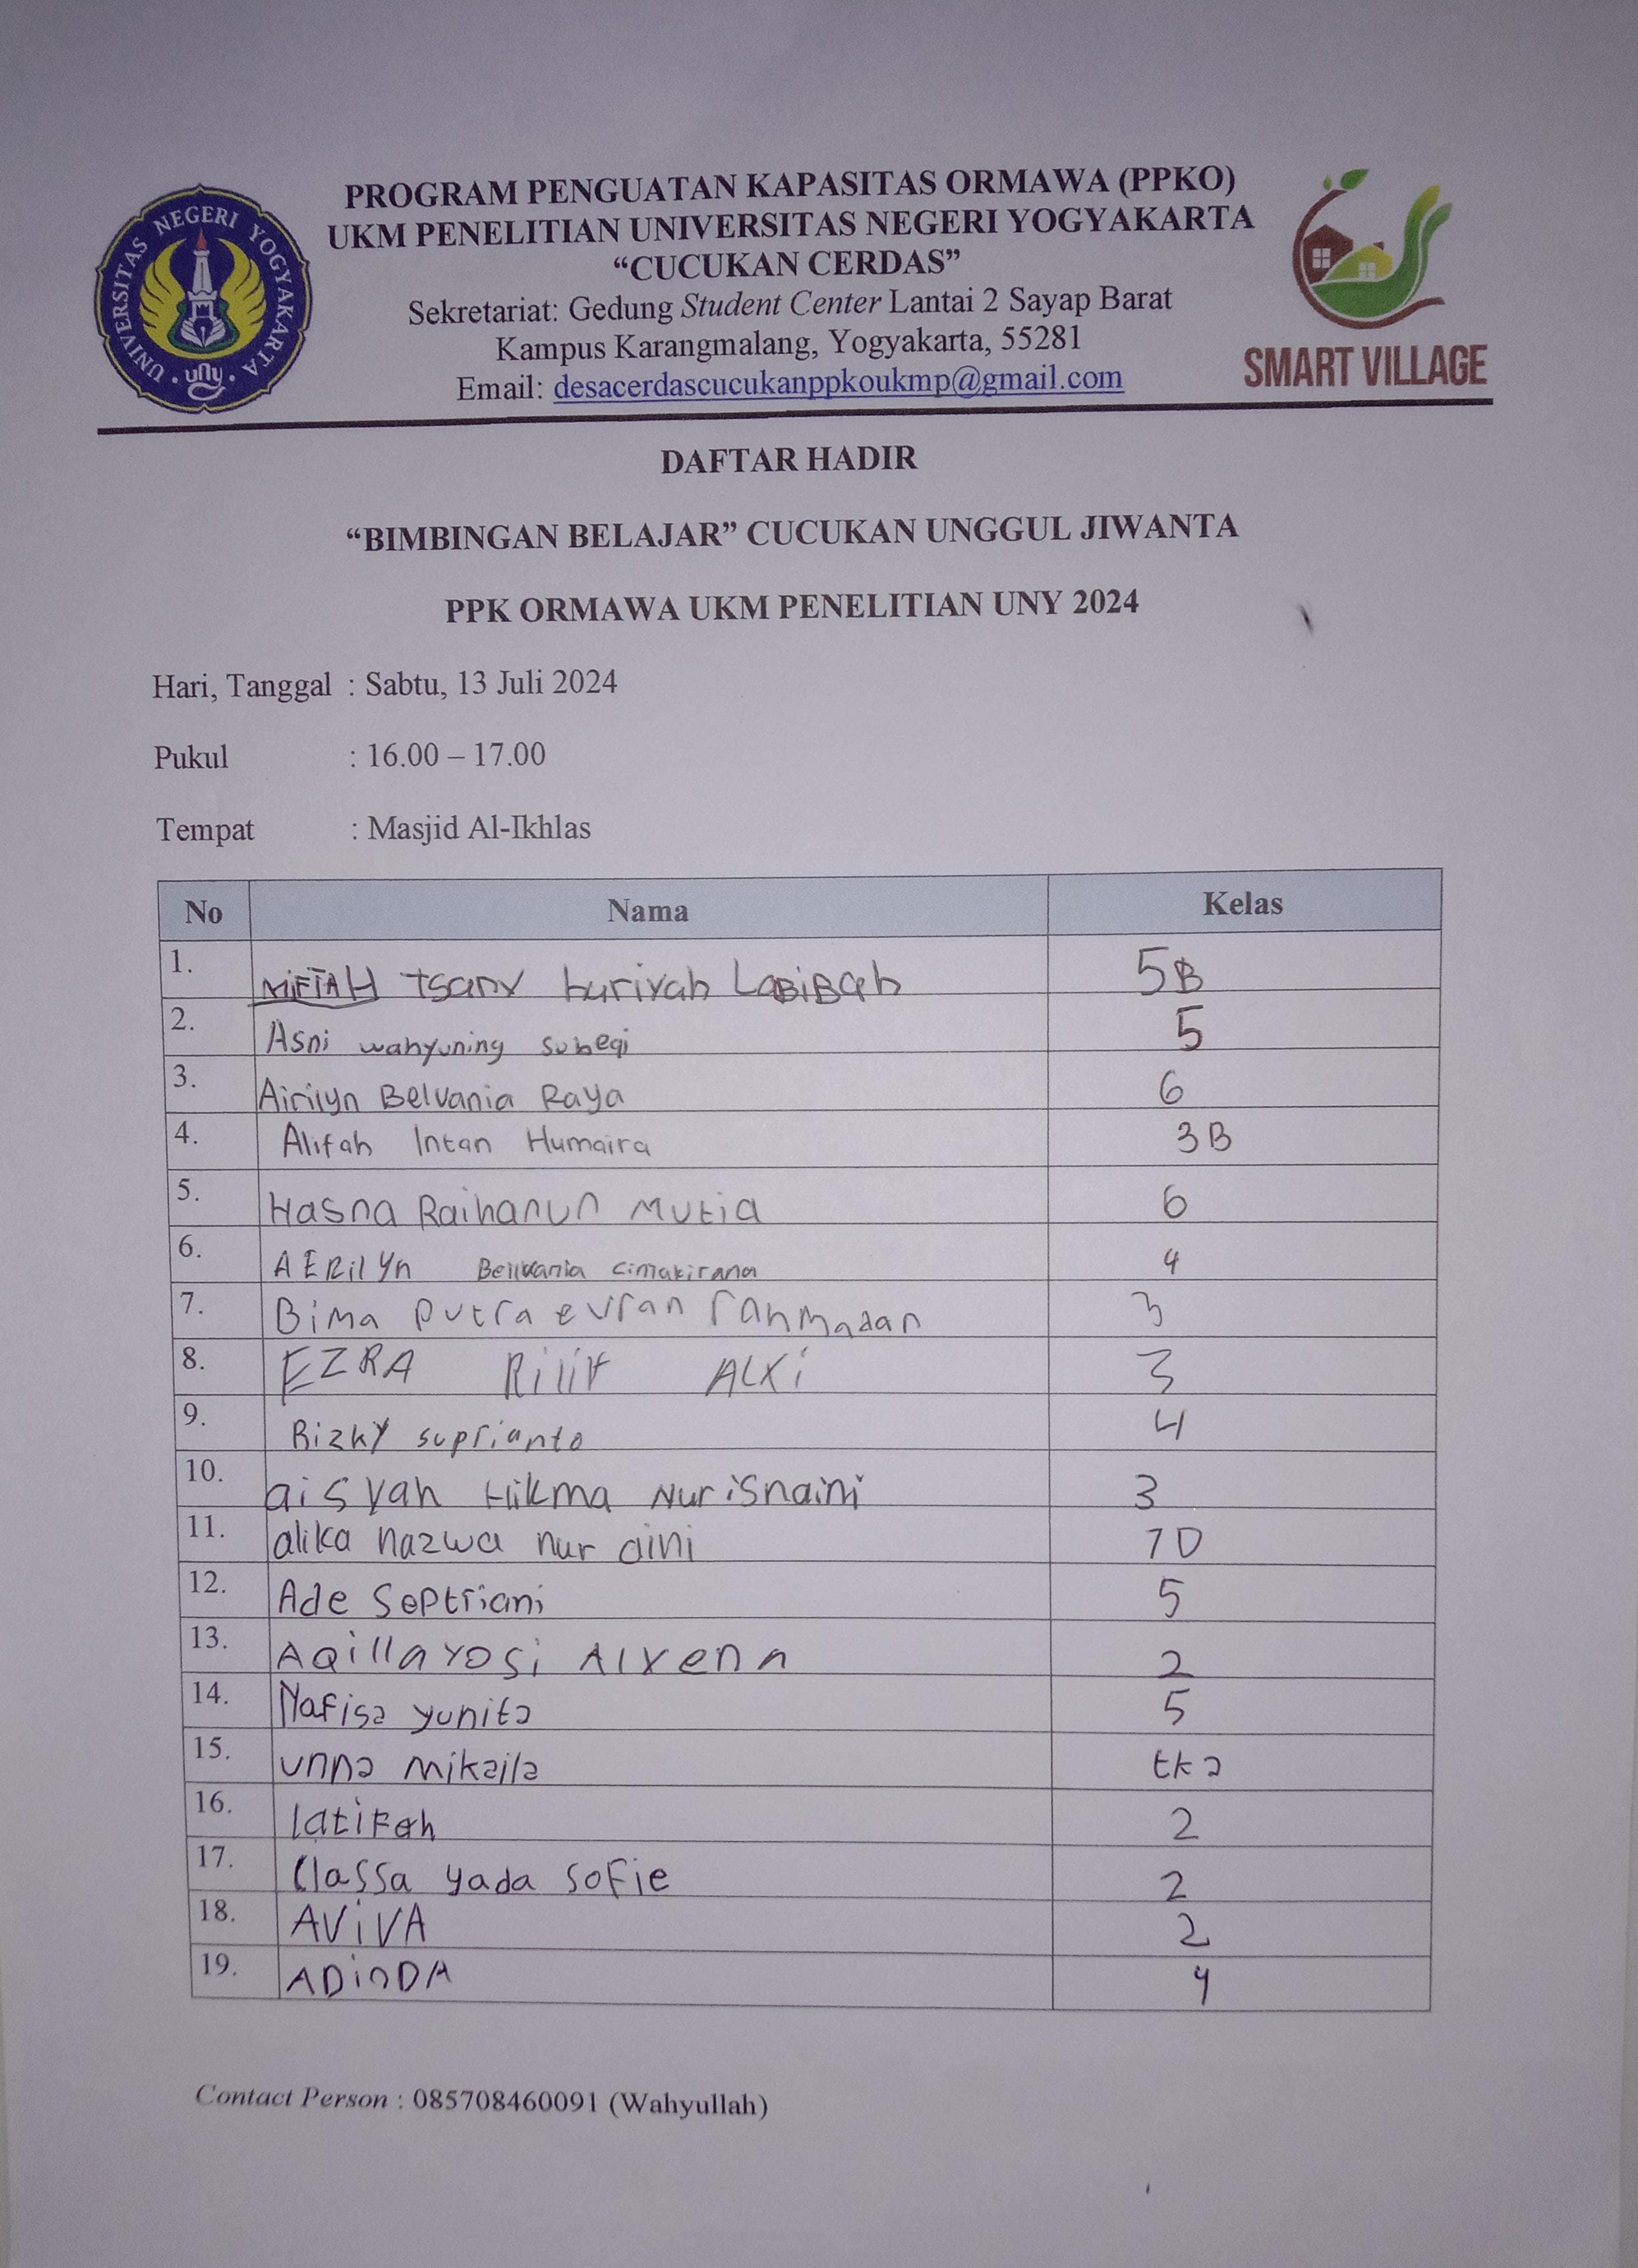 PROGRAM PENGUATAN KAPASITAS ORMAWA (PPKO)
UKM PENELITIAN UNIVERSITAS NEGERI YOGYAKARTA
“CUCUKAN CERDAS”
Sekretariat: Gedung Student Center Lantai 2 Sayap Barat
Kampus Karangmalang, Yogyakarta, 55281
Email: desacerdascucukanppkoukmp@gmail.com
UNIVERSITAS NEGERI YOGYAKARTA
uny
SMART VILLAGE
DAFTAR HADIR
“BIMBINGAN BELAJAR” CUCUKAN UNGGUL JIWANTA
PPK ORMAWA UKM PENELITIAN UNY 2024
Hari, Tanggal : Sabtu, 13 Juli 2024
Pukul : 16.00 – 17.00
Tempat : Masjid Al-Ikhlas
No Nama Kelas
1. MIFTAH Tsany huriyah LaBiBah 5B
2. Asni wahyuning subeqi 5
3. Airilyn Belvania Raya 6
4. Alifah Intan Humaira 3B
5. Hasna Raihanun Mutia 6
6. AERilyn cimakirana 4
7. Bima Putra evran rahmadan 3
8. EZRA 3
9. Rizky suprianto 4
10. aisyah Hikma Nurisnaini 3
11. alika nazwa nur aini 7D
12. Ade Septriani 5
13. Aqilla yosi 2
14. Nafisa yunita 5
15. unna mikaila tka
16. latifah 2
17. Classa yada sofie 2
18. AViVA 2
19. ADinDA 4
Contact Person : 085708460091 (Wahyullah)